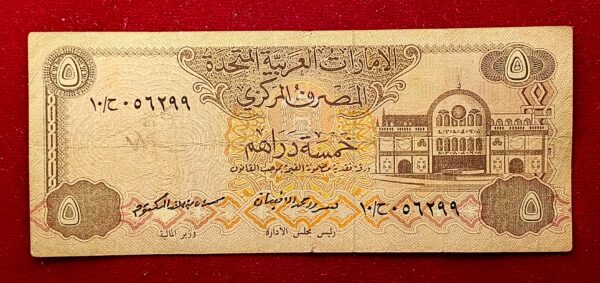 الإمارات العربية المتحدة
المصرف المركزي
٥
٥
١٠/ح ٠٥٦٢٩٩
خمسة دراهم
ورقة نقدية مضمونة القيمة بموجب القانون
١٠/ح ٠٥٦٢٩٩
٥
٥
رئيس مجلس الإدارة
وزير المالية